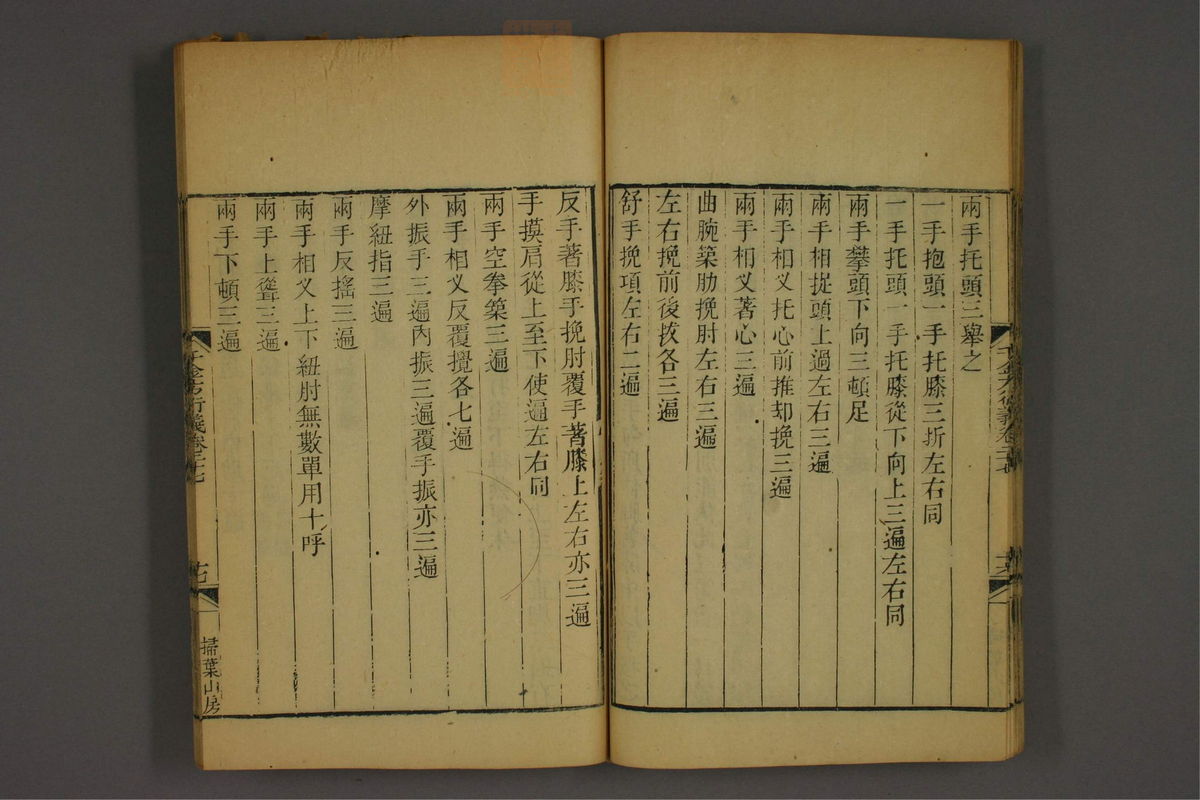 兩手托頭三舉之
一手抱頭一手托膝三折左右同
一手托頭一手托膝從下向上三遍左右同
兩手攀頭下向三頓足
兩手相捉頭上過左右三遍
兩手相义托心前推却挽三遍
兩手相义著心三遍
曲腕築肋挽肘左右三遍
左右挽前後拔各三遍
舒手挽項左右二遍
反手著膝手挽肘覆手著膝上左右亦三遍
手摸肩從上至下使遍左右同
兩手空拳築三遍
兩手相义反覆攪各七遍
外振手三遍內振三遍覆手振亦三遍
摩紐指三遍
兩手反搖三遍
兩手相义上下紐肘無數單用十呼
兩手上聳三遍
兩手下頓三遍
千金方衍義卷二十七
掃葉山房